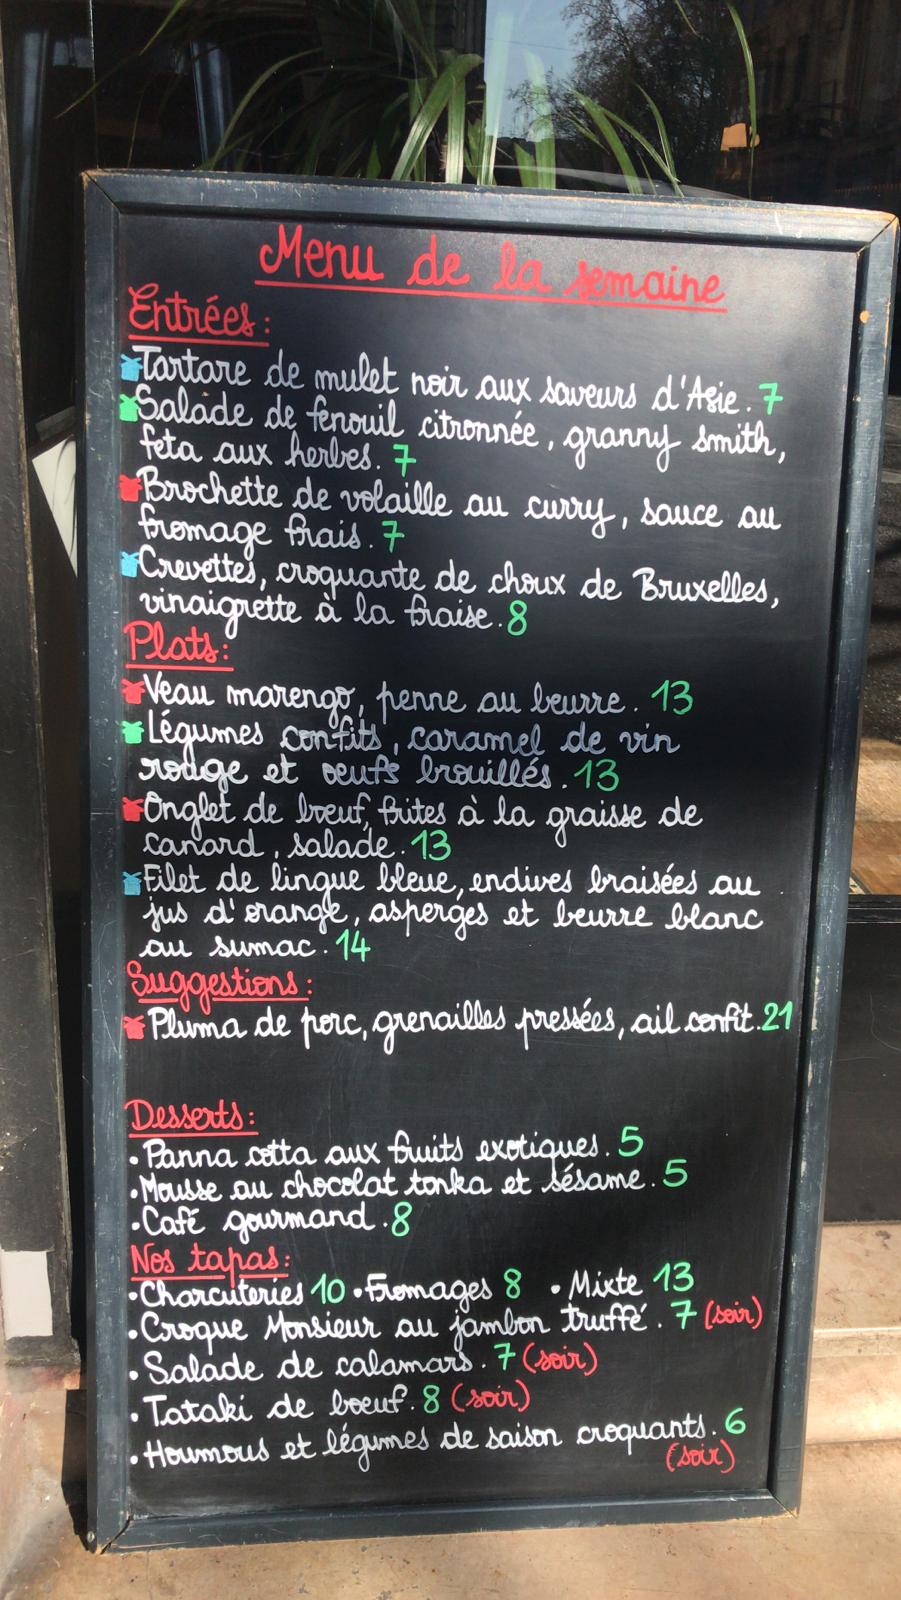 Menu de la semaine
Entrées:
Tartare de mulet noir aux saveurs d'Asie. 7
Salade de fenouil citronnée, granny smith,
feta aux herbes. 7
Brochette de volaille au curry, sauce au
fromage frais. 7
Crevettes, croquante de choux de Bruxelles,
vinaigrette à la fraise. 8
Plats:
Veau marengo, penne au beurre. 13
Légumes confits, caramel de vin
rouge et oeufs brouillés. 13
Onglet de boeuf, frites à la graisse de
canard, salade. 13
Filet de lingue bleue, endives braisées au
jus d'orange, asperges et beurre blanc
au sumac. 14
Suggestions:
Pluma de porc, grenailles pressées, ail confit. 21
Desserts:
• Panna cotta aux fruits exotiques. 5
• Mousse au chocolat tonka et sésame. 5
• Café gourmand. 8
Nos tapas:
• Charcuteries 10 • Fromages 8 • Mixte 13
• Croque Monsieur au jambon truffé. 7 (soir)
• Salade de calamars. 7 (soir)
• Tataki de boeuf. 8 (soir)
• Houmous et légumes de saison croquants. 6
(soir)